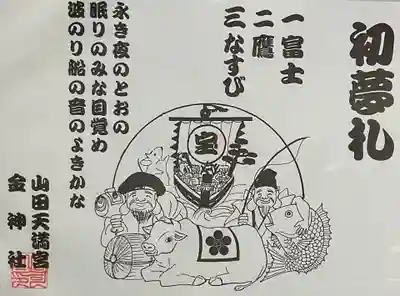 初夢札
一富士
二鷹
三なすび
永き夜のとおの
眠りのみな目覚め
波のり船の音のよきかな
山田天満宮
金神社
宝